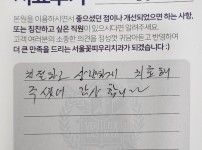 본원을 이용하시면서 좋으셨던 점이나 개선되었으면 하는 사항,
또는 칭찬하고 싶은 직원이 있으시다면 알려주세요.
고객 여러분의 소중한 의견을 정성껏 귀담아듣고 반영하여
더 큰 만족을 드리는 서울꽃피우리치과가 되겠습니다 :)
친절하고 섬세하게 치료해
주셔서 감사합니다